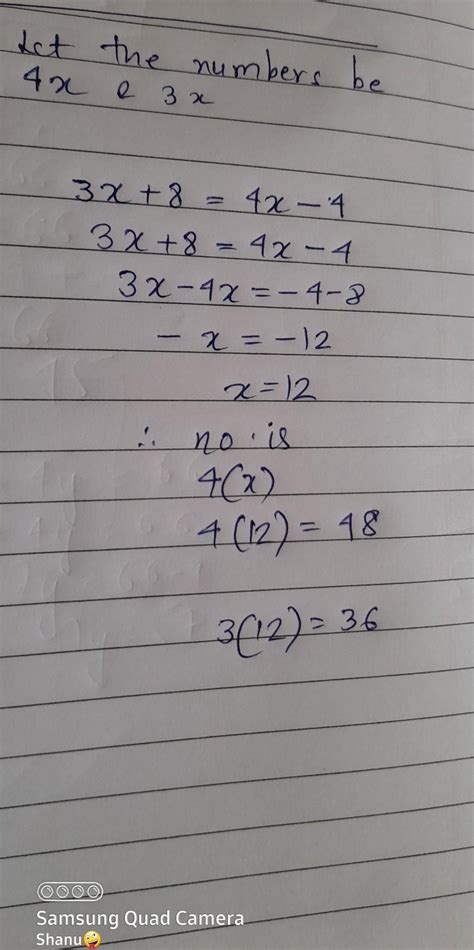 Let the numbers be
4x e 3x
3x + 8 = 4x - 4
3x + 8 = 4x - 4
3x - 4x = - 4 - 8
- x = - 12
x = 12
∴ no. is
4(x)
4(12) = 48
3(12) = 36
Samsung Quad Camera
Shanu🤪